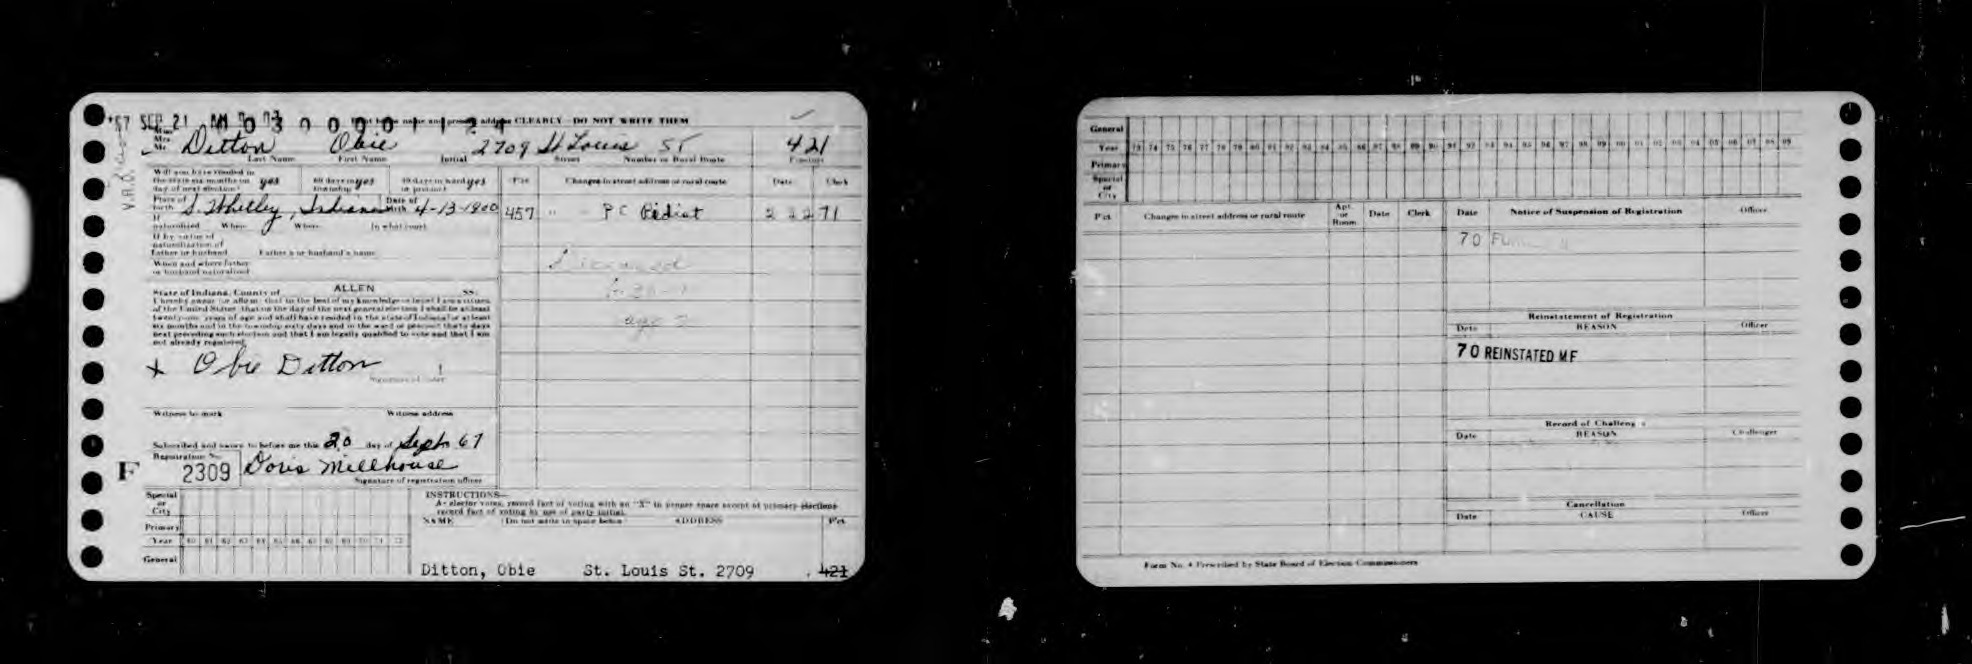 '67 SEP 21 AM
0 3 0 0 0 0 1 1 2 4
name and present address CLEARLY - DO NOT WRITE THEM
V.R.O.
Miss
Mrs.
Mr.
Ditton Obie 2709 St Louis ST 421
Last Name First Name Initial Street Number or Rural Route Precinct
Will you have resided in
the state six months on yes 60 days in yes 30 days in ward yes
day of next election? township or precinct
Pct Changes in street address or rural route Date Clerk
Place of Date of
birth S. Whitley, Indiana birth 4-13-1900
457 " - PC 2 22 71
If
naturalized When Where In what court
If by virtue of
naturalization of
father or husband Father's or husband's name
When and where father
or husband naturalized
State of Indiana, County of ALLEN SS:
I hereby swear (or affirm) that to the best of my knowledge or belief I am a citizen
of the United States, that on the day of the next general election I shall be at least
twenty-one years of age and shall have resided in the state of Indiana for at least
six months and in the township sixty days and in the ward or precinct thirty days
next preceding such election and that I am legally qualified to vote and that I am
not already registered.
age
x Obie Ditton
Signature of voter
Witness to mark Witness address
Subscribed and sworn to before me this 20 day of Sept 67
Registration No.
F 2309 Doris Millhouse
Signature of registration officer
Special
or
City
Primary
Year 60 61 62 63 64 65 66 67 68 69 70 71 72
General
INSTRUCTIONS—
As elector votes, record fact of voting with an "X" in proper space except at primary elections
record fact of voting by use of party initial.
NAME (Do not write in space below) ADDRESS Pct.
Ditton, Obie St. Louis St. 2709 421
General
Year 73 74 75 76 77 78 79 80 81 82 83 84 85 86 87 88 89 90 91 92 93 94 95 96 97 98 99 00 01 02 03 04 05 06 07 08 09
Primary
Special
or
City
Pct. Changes in street address or rural route Apt. or Room Date Clerk
Date Notice of Suspension of Registration Officer
70
Reinstatement of Registration
Date REASON Officer
70 REINSTATED M F
Record of Challenge
Date REASON Challenger
Cancellation
Date CAUSE Officer
Form No. 4 Prescribed by State Board of Election Commissioners